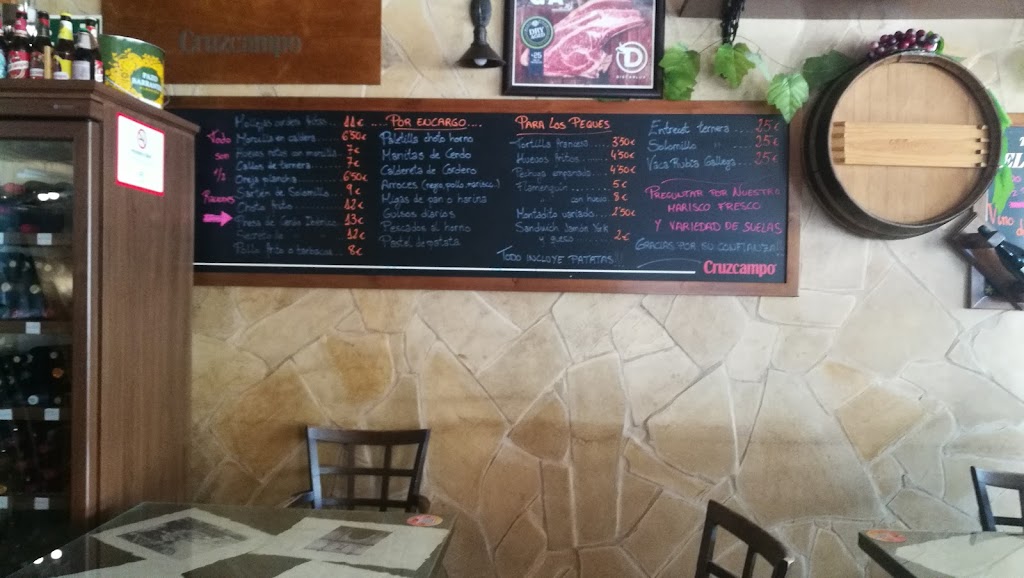 Cruzcampo
DRY AGED
+25
Todo
son
½
Raciones
Mollejas cordero fritas 11€
Morcilla en caldera 6'50€
Huevos rotos con morcilla 7€
Callos de ternera 7€
Oreja plancha 6'50€
de Solomillo 9€
Choto frito 12€
Presa de Cerdo Ibérico 13€
12€
Pollo frito o barbacoa 8€
.... POR ENCARGO ....
Paletilla choto horno
Manitas de Cerdo
Caldereta de Cordero
Arroces (negra, pollo, marisco..)
Migas de pan o harina
Guisos diarios
Pescados al horno
Pastel de patata
PARA LOS PEQUES
Tortilla francesa 3'50€
Huevos fritos 4'50€
Pechuga empanada 4'50€
Flamenquín 5€
" con huevo 8€
Montadito variado 2'50€
Sandwich Jamón York
y queso 2€
TODO INCLUYE PATATAS!!!
Entrecot ternera 25€
Solomillo " 25€
Vaca Rubia Gallega 25€
PREGUNTAR POR NUESTRO
MARISCO FRESCO
Y VARIEDAD DE SUELAS
GRACIAS POR SU CONFIANZA
Cruzcampo